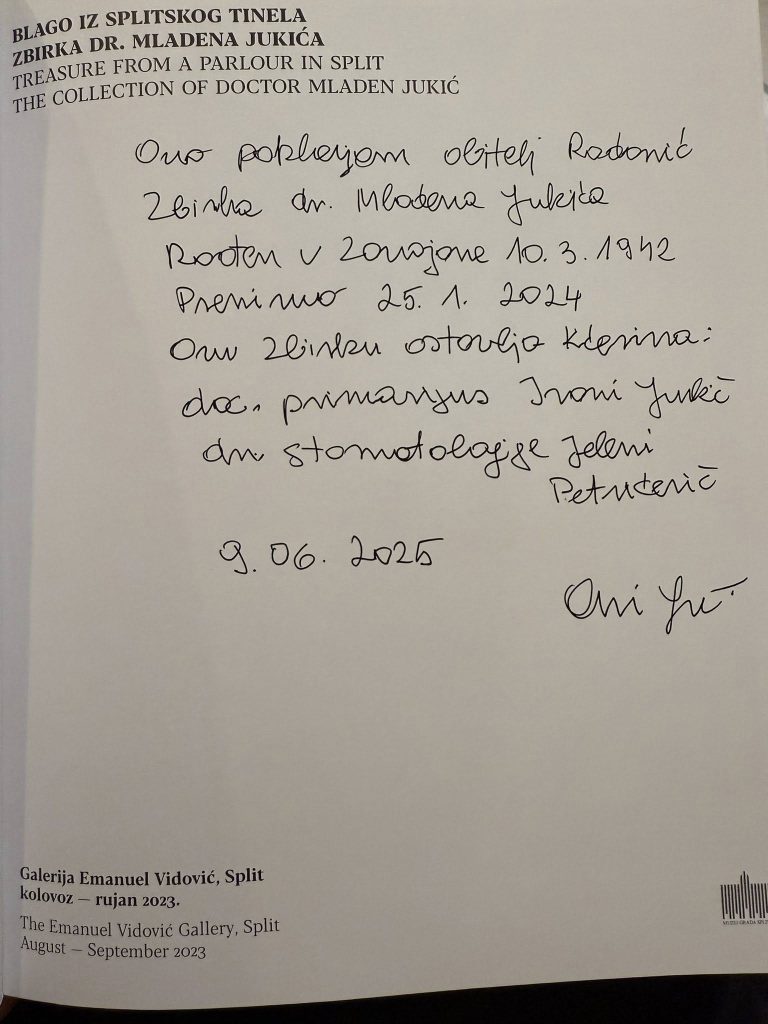 BLAGO IZ SPLITSKOG TINELA
ZBIRKA DR. MLADENA JUKIĆA
TREASURE FROM A PARLOUR IN SPLIT
THE COLLECTION OF DOCTOR MLADEN JUKIĆ
Ovo poklanjam obitelj Radonić
Zbirka dr. Mladena Jukića
Rođen v 10. 3. 1942
Preminuo 25. 1. 2024
Ovu zbirku ostavlja kćerima:
doc. primarijus Ivani Jukić
dr. stomatologije Jeleni
Petričević
9. 06. 2025
Galerija Emanuel Vidović, Split
kolovoz — rujan 2023.
The Emanuel Vidović Gallery, Split
August — September 2023
MUZEJ GRADA SPLITA